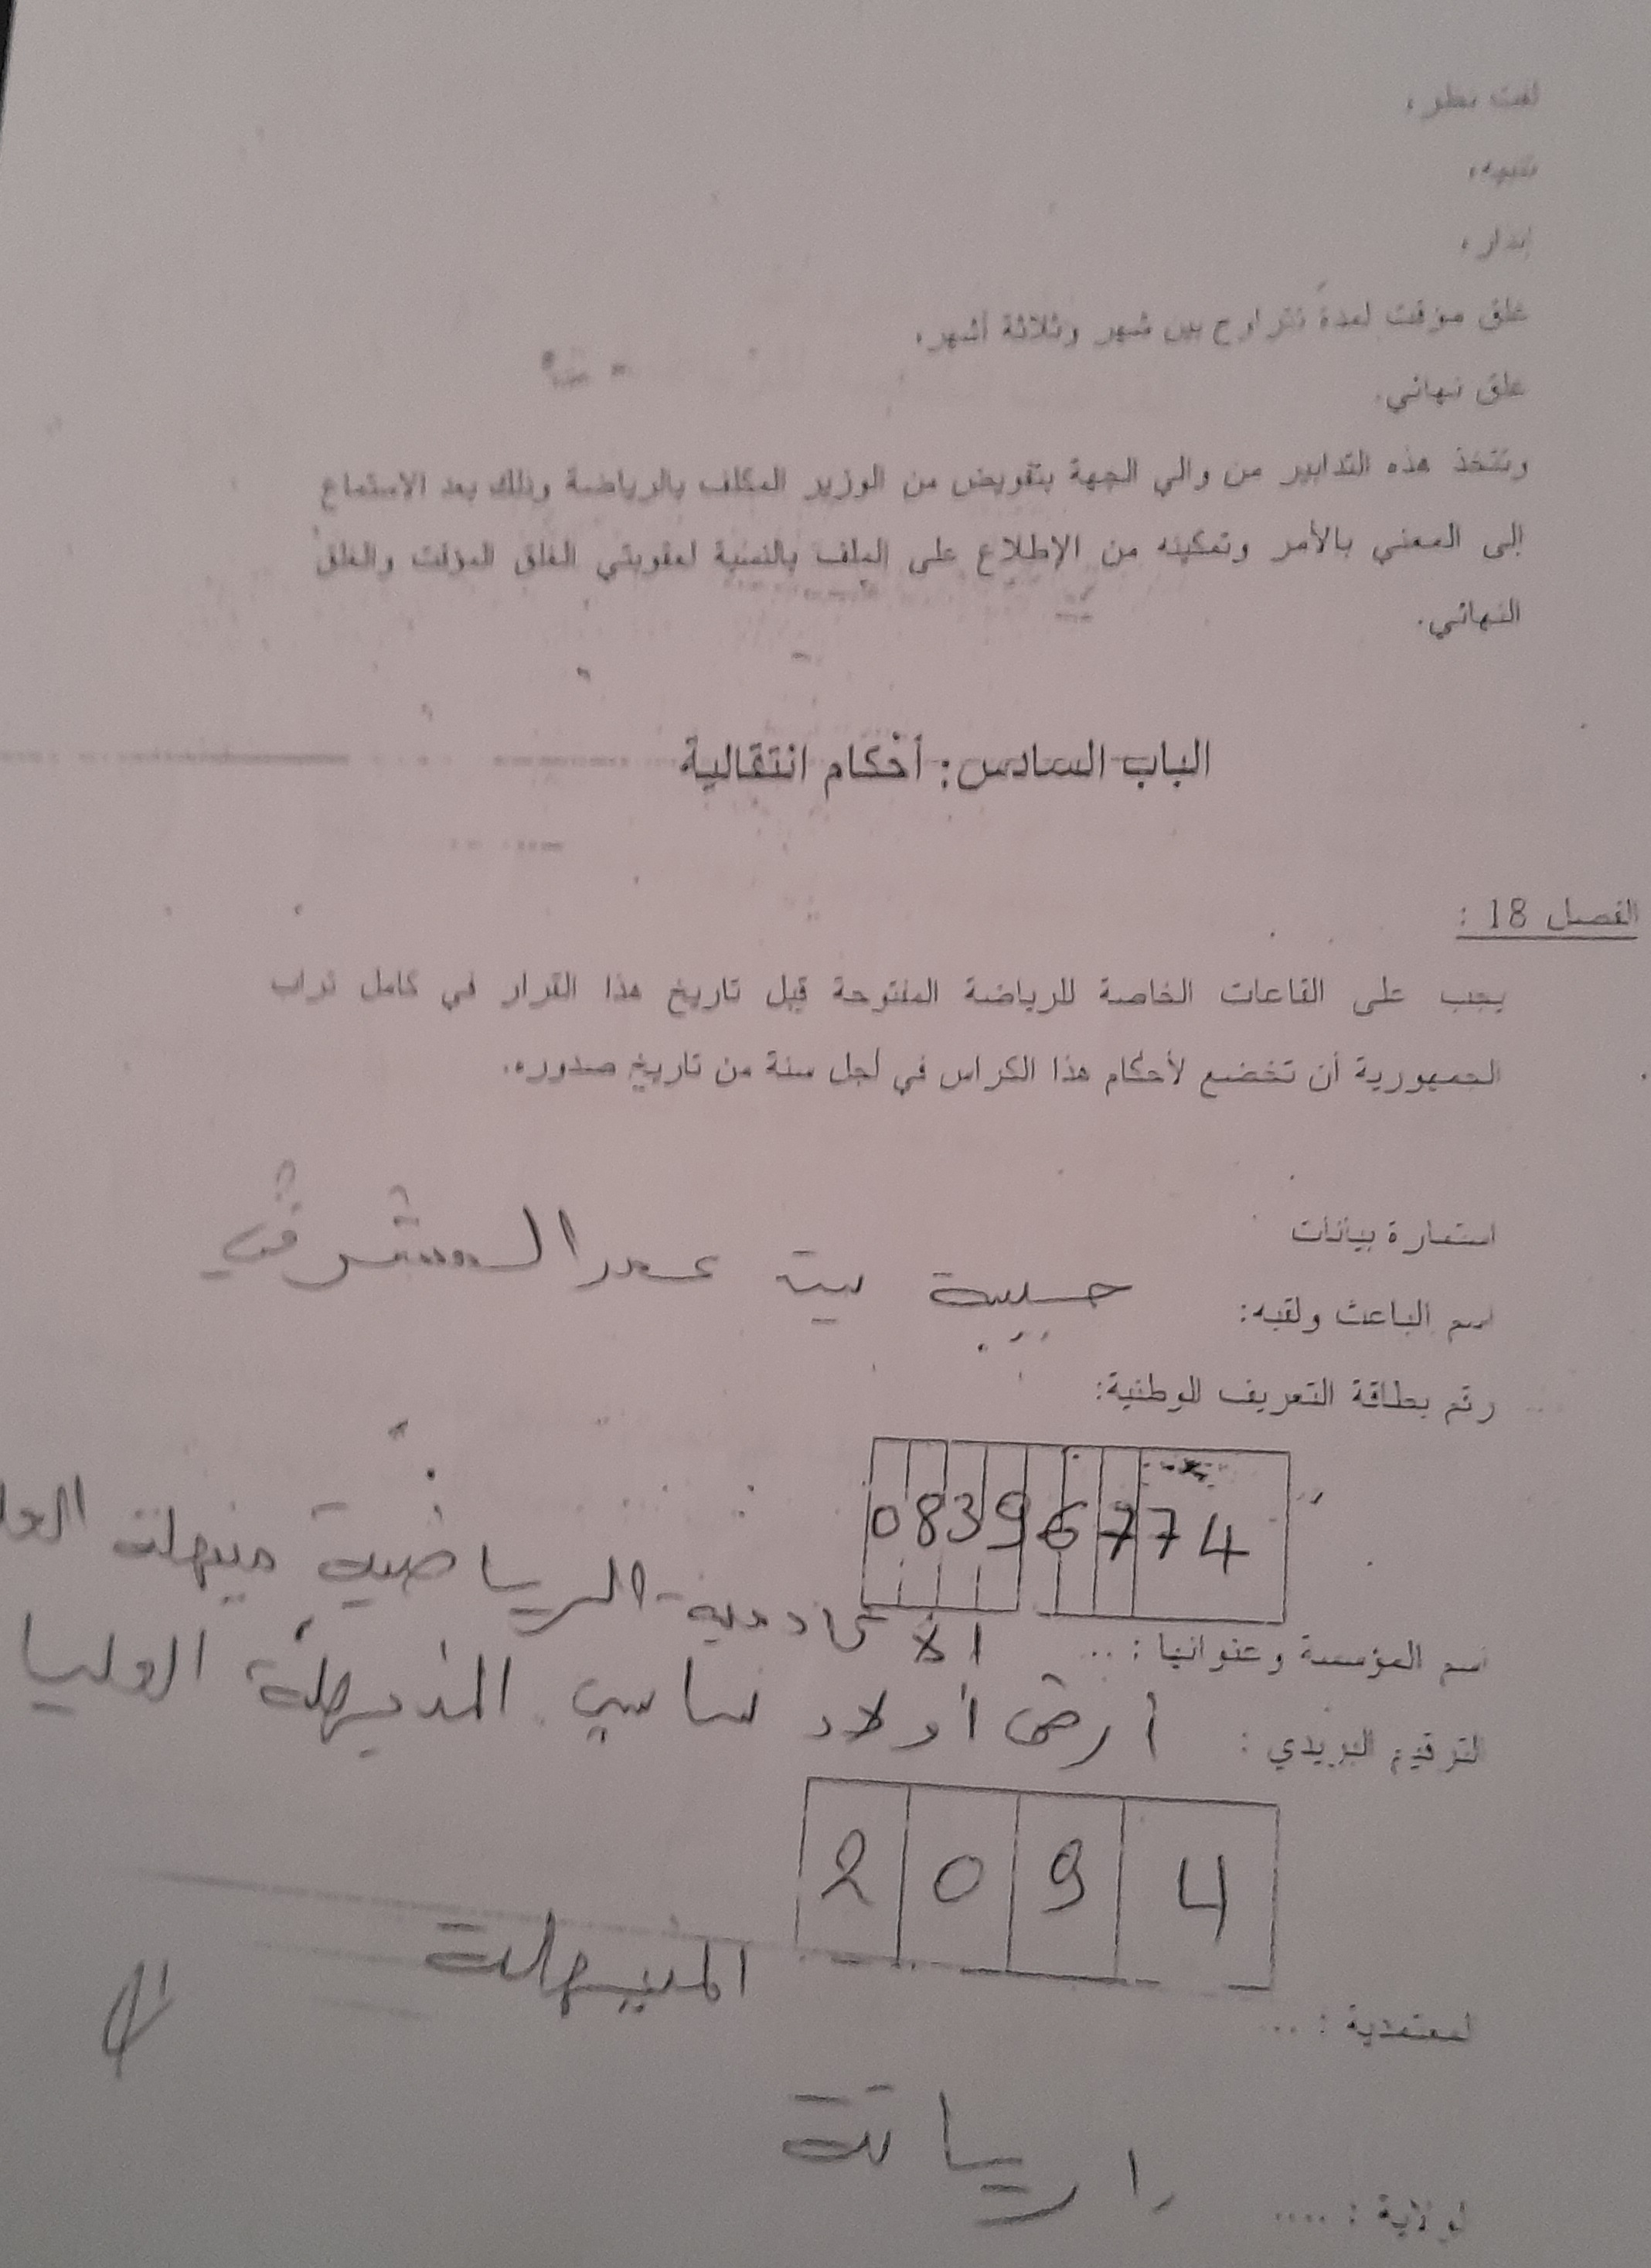 لفت نظر،
تنبيه،
إنذار،
غلق مؤقت لمدة تتراوح بين شهر وثلاثة أشهر،
غلق نهائي.
وتتخذ هذه التدابير من والي الجهة بتفويض من الوزير المكلف بالرياضة وذلك بعد الاستماع
إلى المعني بالأمر وتمكينه من الإطلاع على الملف بالنسبة لعقوبتي الغلق المؤقت والغلق
النهائي.
الباب السادس: أحكام انتقالية
الفصل 18 :
يجب على القاعات الخاصة للرياضة المفتوحة قبل تاريخ هذا القرار في كامل تراب
الجمهورية أن تخضع لأحكام هذا الكراس في أجل سنة من تاريخ صدوره.
استمارة بيانات
اسم الباعث ولقبه: حبيبة بنت عمر المشرقي
رقم بطاقة التعريف الوطنية:
08396774
اسم المؤسسة وعنوانها : ... الاكادمية الرياضية منيهلة
أرض أولاد ساسي المنيهلة العليا
الترقيم البريدي :
2094
لمعتمدية : ... المنيهلة
لولاية : .... اريانة